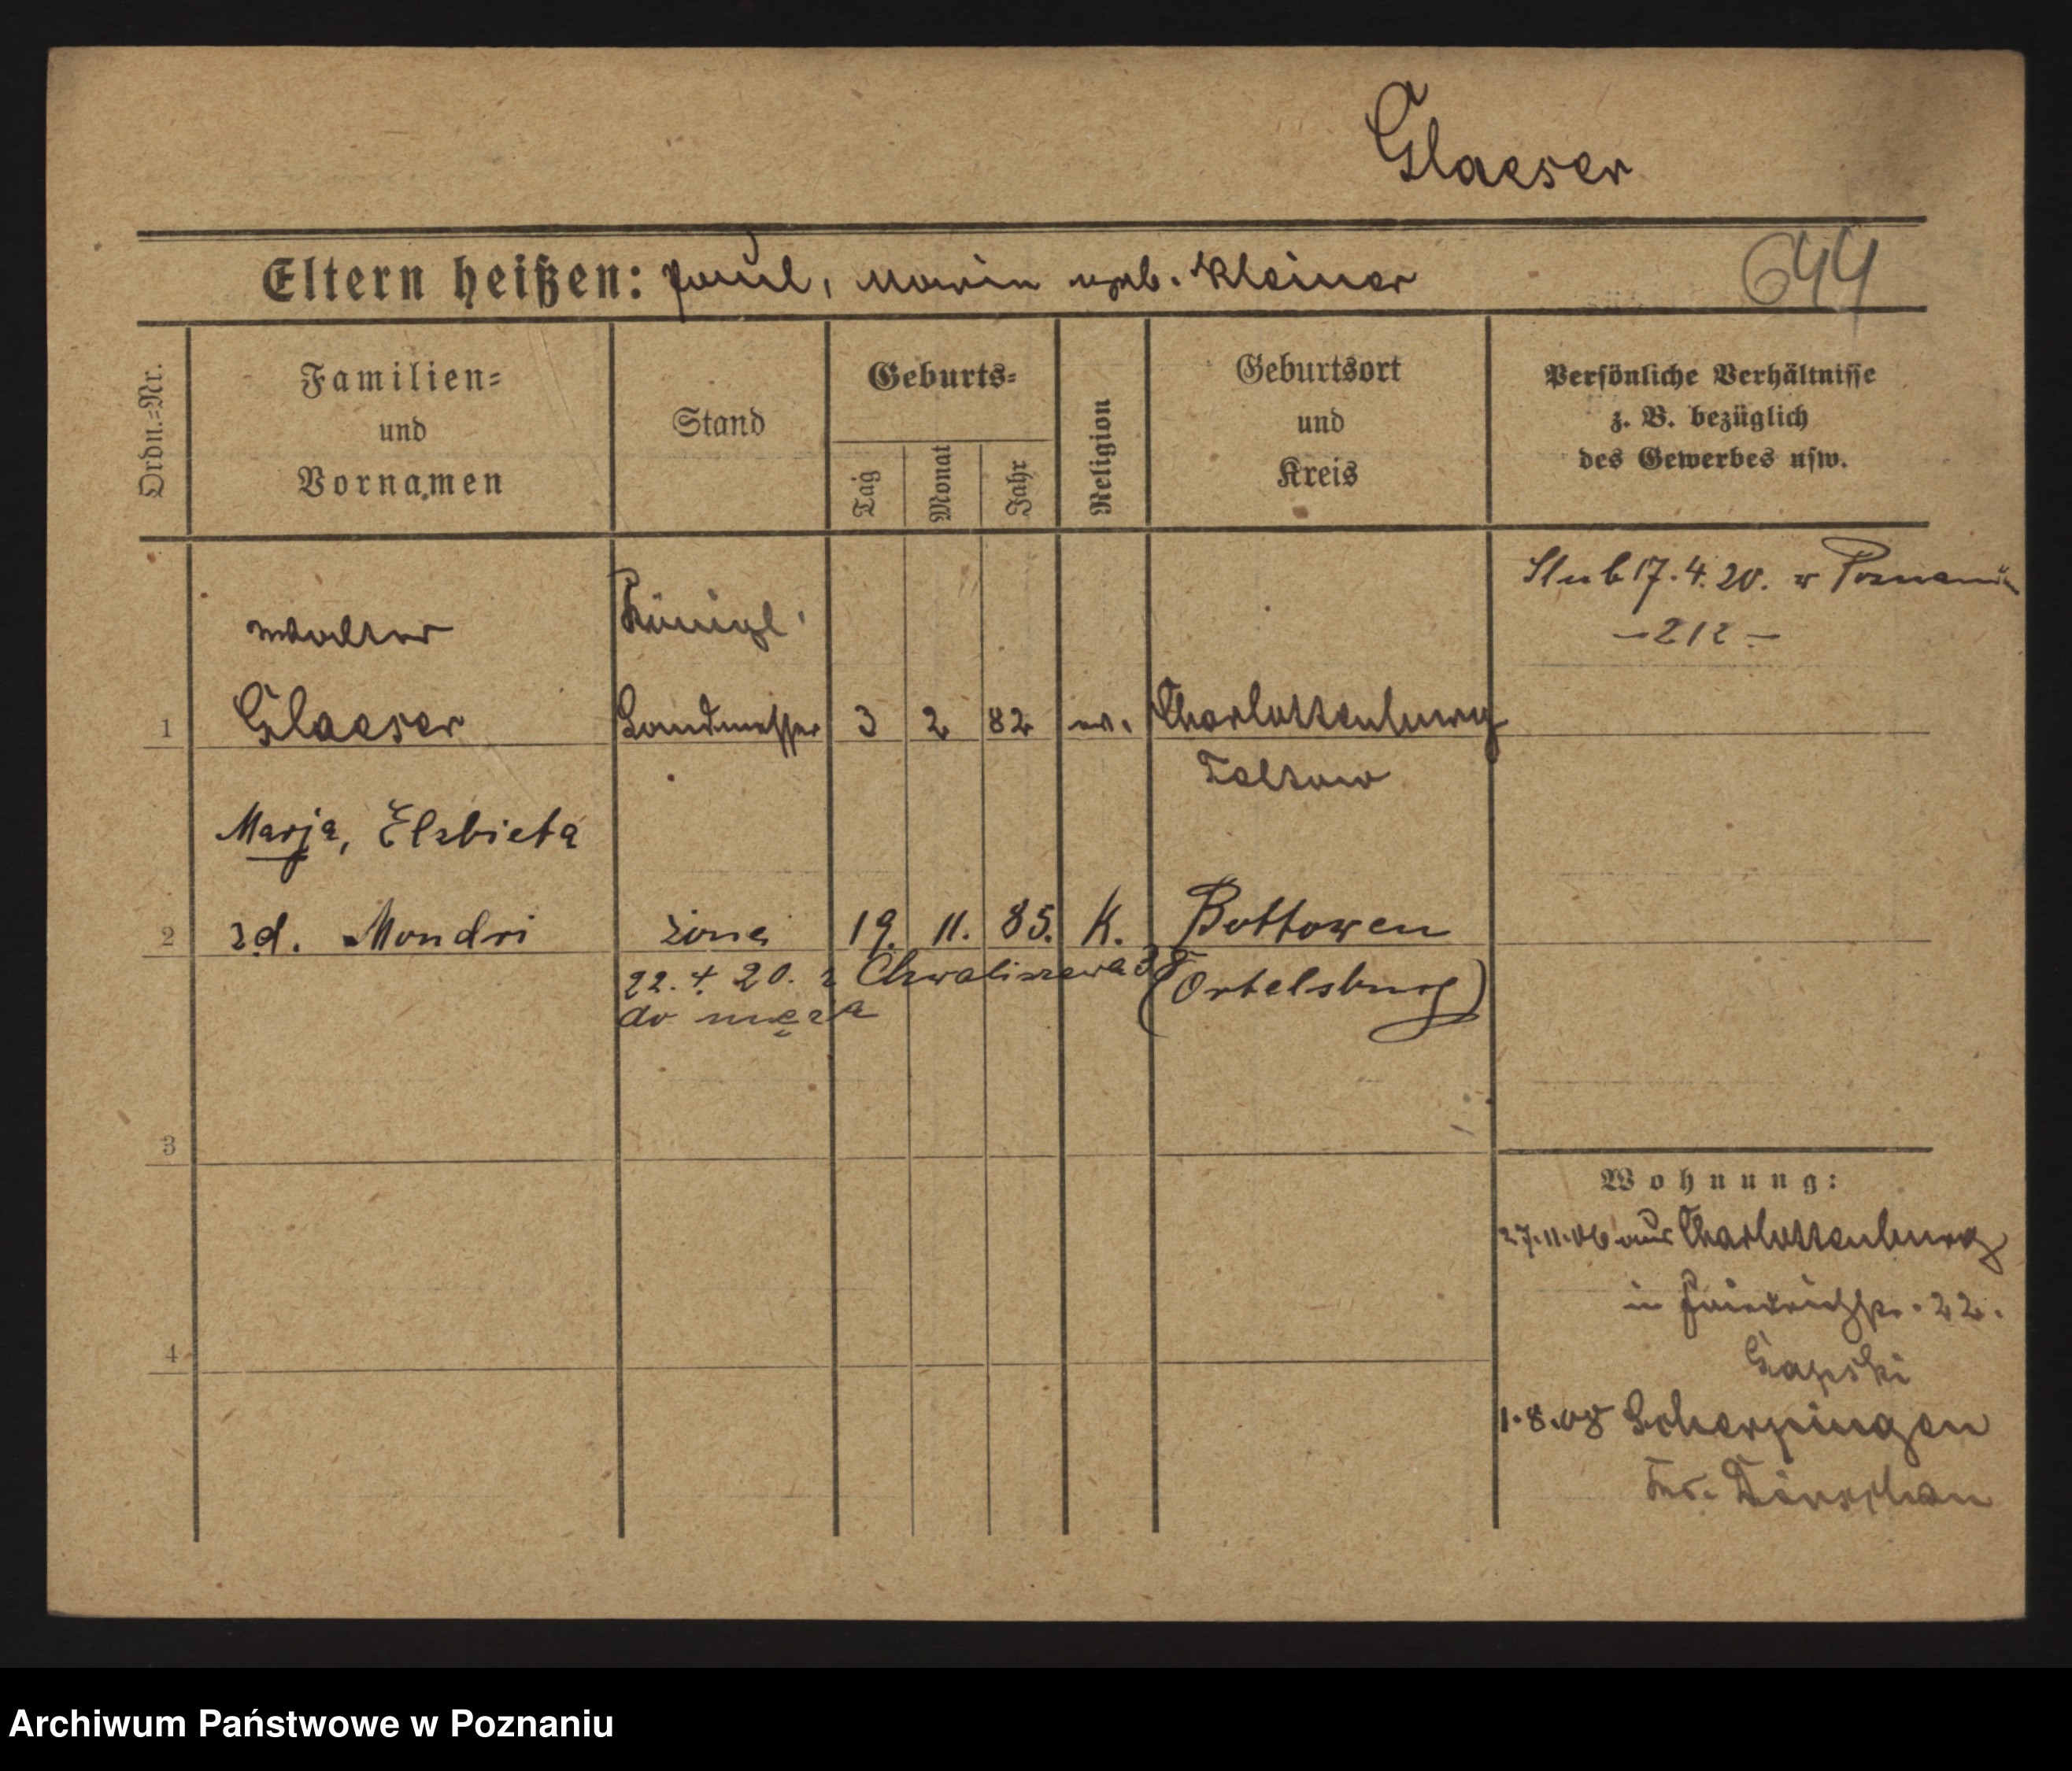 Glaeser
Eltern heißen: Paul, Marie geb. Kleiner
644
Ordn.=Nr.
Familien=
und
Vornamen
Stand
Geburts=
Tag
Monat
Jahr
Religion
Geburtsort
und
Kreis
Persönliche Verhältnisse
z. B. bezüglich
des Gewerbes usw.
Walter
Königl.
Ślub 17.4.20. w Poznaniu
– 212 –
1 Glaeser Landmesser 3 2 82 ev. Charlottenburg
Teltow
Marja, Elzbieta
2 zd. Mondri żona 19. 11. 85. K. Bottowen
22. 4. 20. z Chwaliszewa 38 (Ortelsburg)
do męża
3
Wohnung:
27.11.06 aus Charlottenburg
in Friedrichstr. 22.
4
1.8.08 Scherpingen
Kr. Dirschau
Archiwum Państwowe w Poznaniu